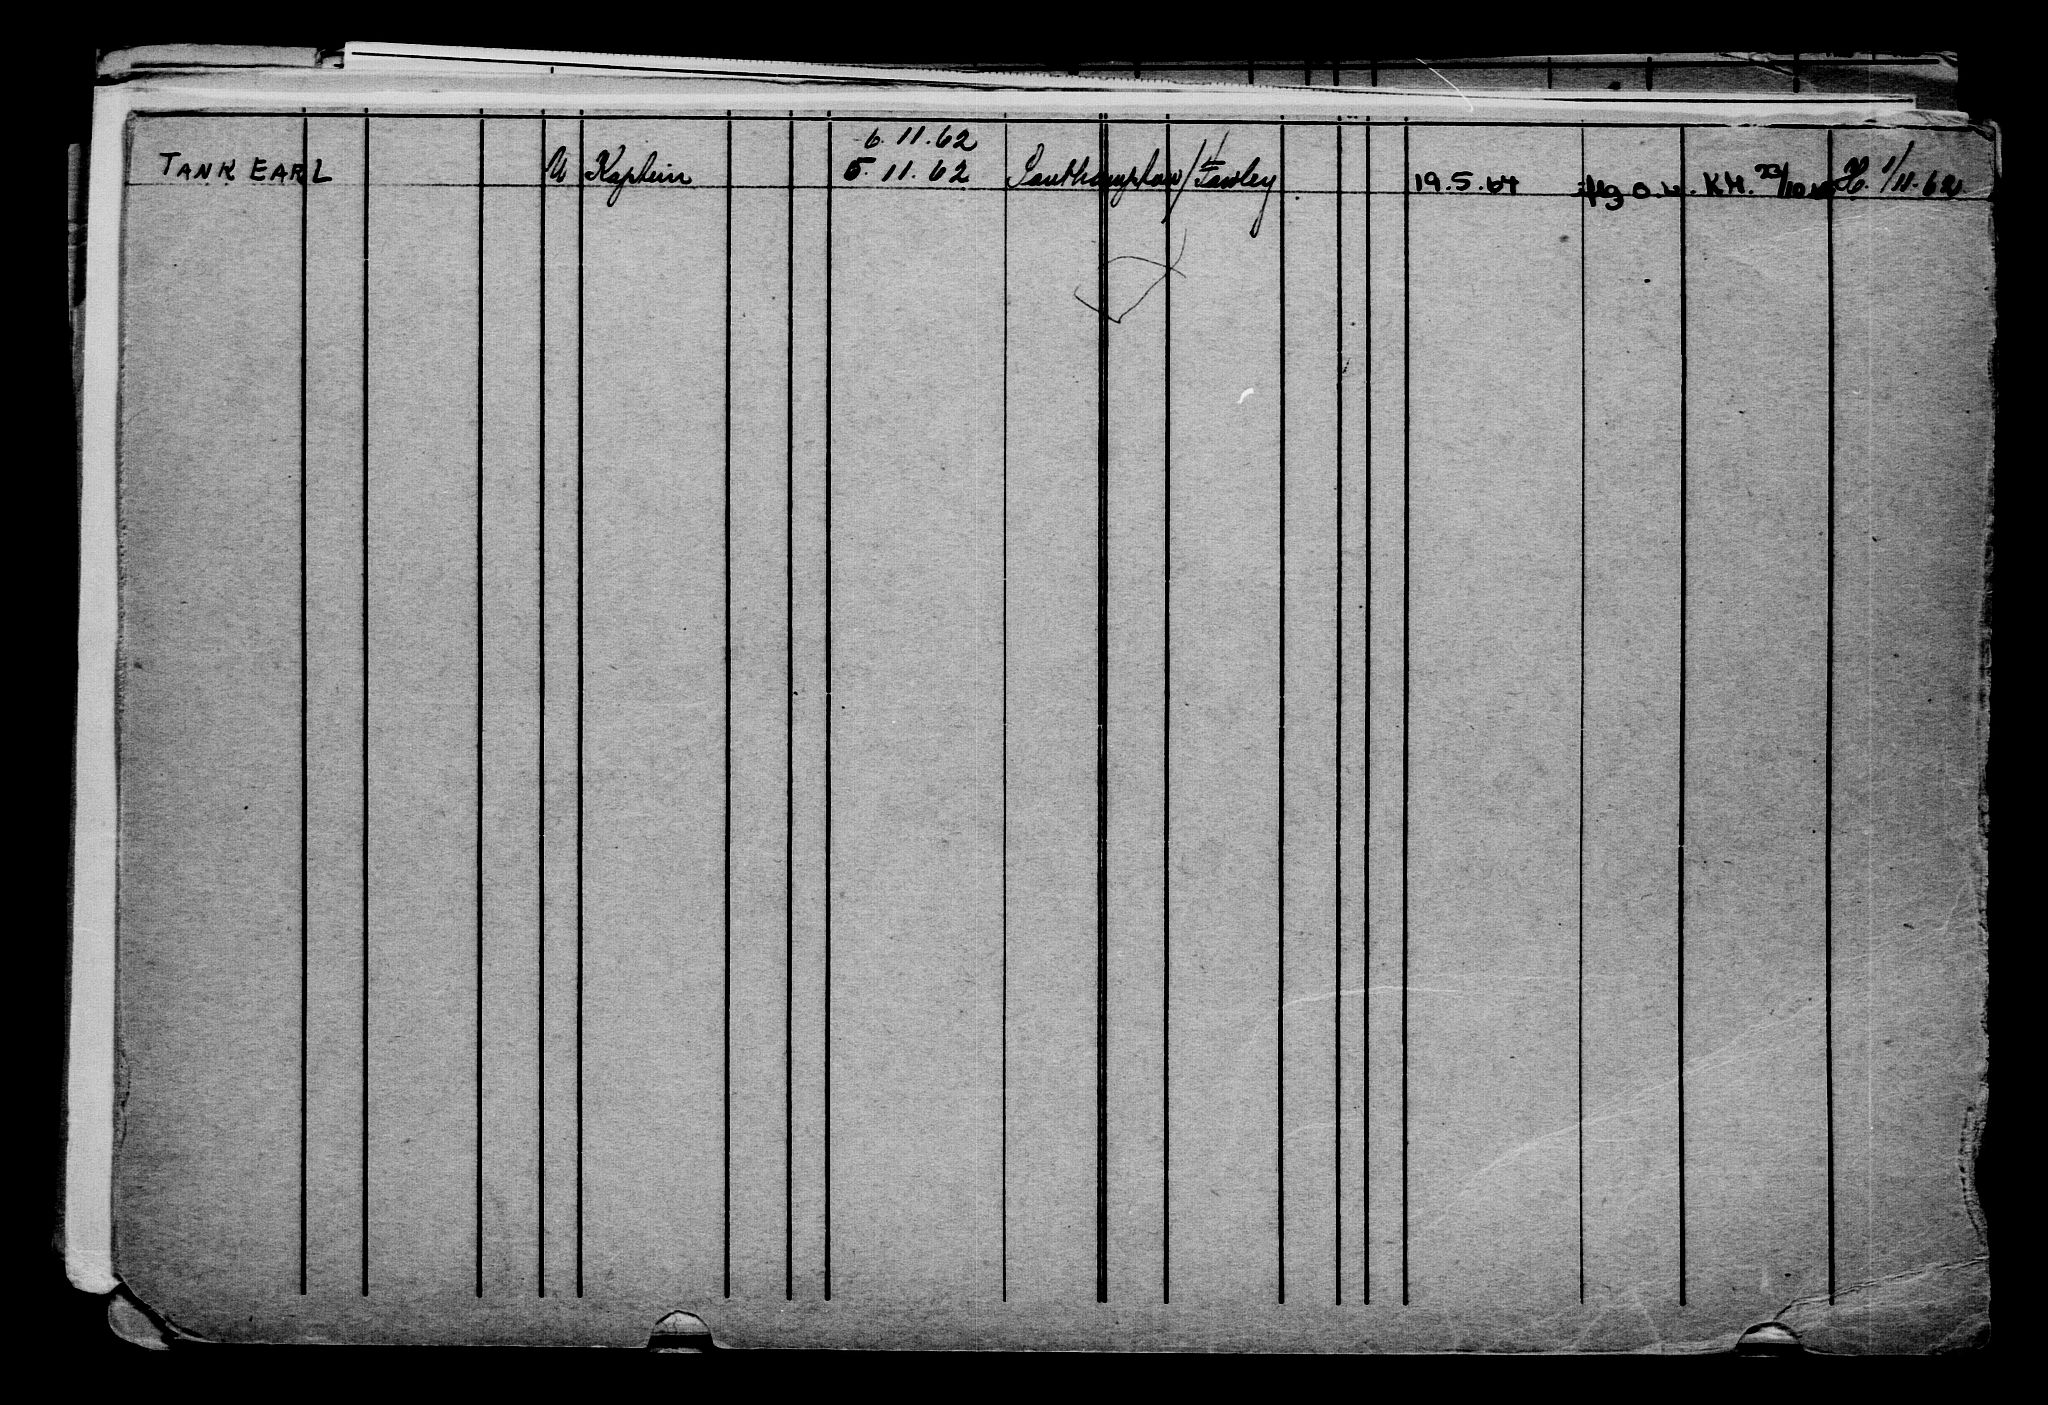 6.11.62
TANK EARL U Kaptein 5.11.62 Southampton/Fawley 19.5.64 K.H. 23/10 1/11.62